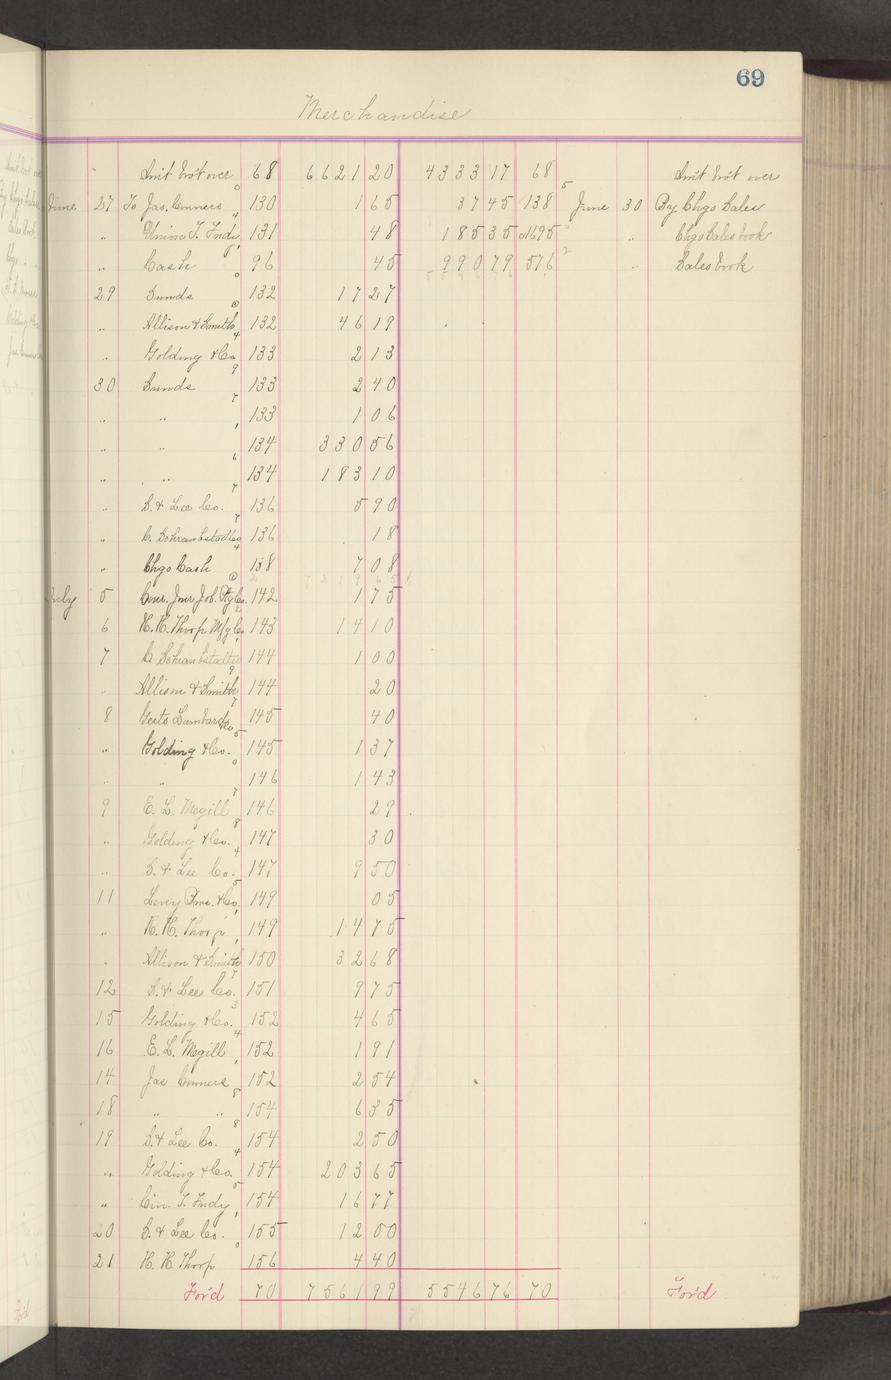 69
Merchandise
Am't bro't over 68 6621 20 4333 17 68 Am't bro't over
June 27 To Jas. Conners 130 1 65 37 45 138 June 30 By Chgo Sales
" Union T. Fndy 131 48 185 35 1695 " Chgo Sales book
" Cash 96 45 990 79 576 " Sales book
29 Sunds 132 17 27
" Allison & Smith 132 46 19
" Golding & Co 133 2 13
30 Sunds 133 2 40
" " 133 1 06
" " 134 330 56
" " 134 183 10
" S. & Lee Co. 136 5 90
" 136 18
" Chgo Cash 138 7 08
July 5 Jour. Job. Co. 142 1 75
6 H. H. Thorp Mfg Co 143 14 10
7 144 1 00
" Allison & Smith 144 20
8 145 40
" Golding & Co. 145 1 37
" " 146 1 43
9 E. L. Megill 146 29
" Golding & Co. 147 30
" S. & Lee Co. 147 9 50
11 & Co. 149 05
" H. H. Thorp 149 14 75
" Allison & Smith 150 32 68
12 S. & Lee Co. 151 9 75
15 Golding & Co. 152 4 65
16 E. L. Megill 152 1 91
14 Jas Conners 152 2 54
18 " " 154 6 35
19 S. & Lee Co. 154 2 50
" Golding & Co. 154 203 65
" Cin. T. Fndy 154 16 77
20 S. & Lee Co. 155 12 00
21 H. H. Thorp 156 4 40
For'd 70 7561 99 5546 76 70 For'd